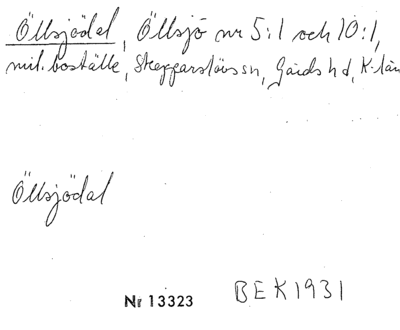 Öllsjödal, Öllsjö nr 5:1 och 10:1,
mil. boställe, Skepparslövs sn, Gärds hd, K-län
Öllsjödal
Nr 13323 BEK1931